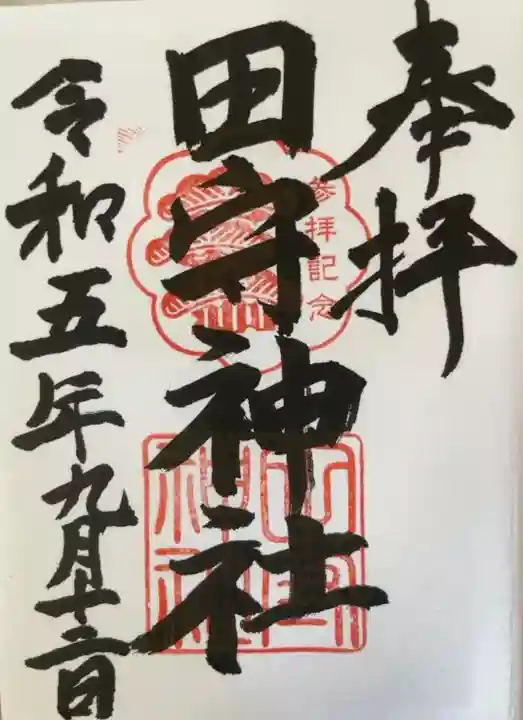 奉拝
参拝記念
田守神社
令和五年九月十二日